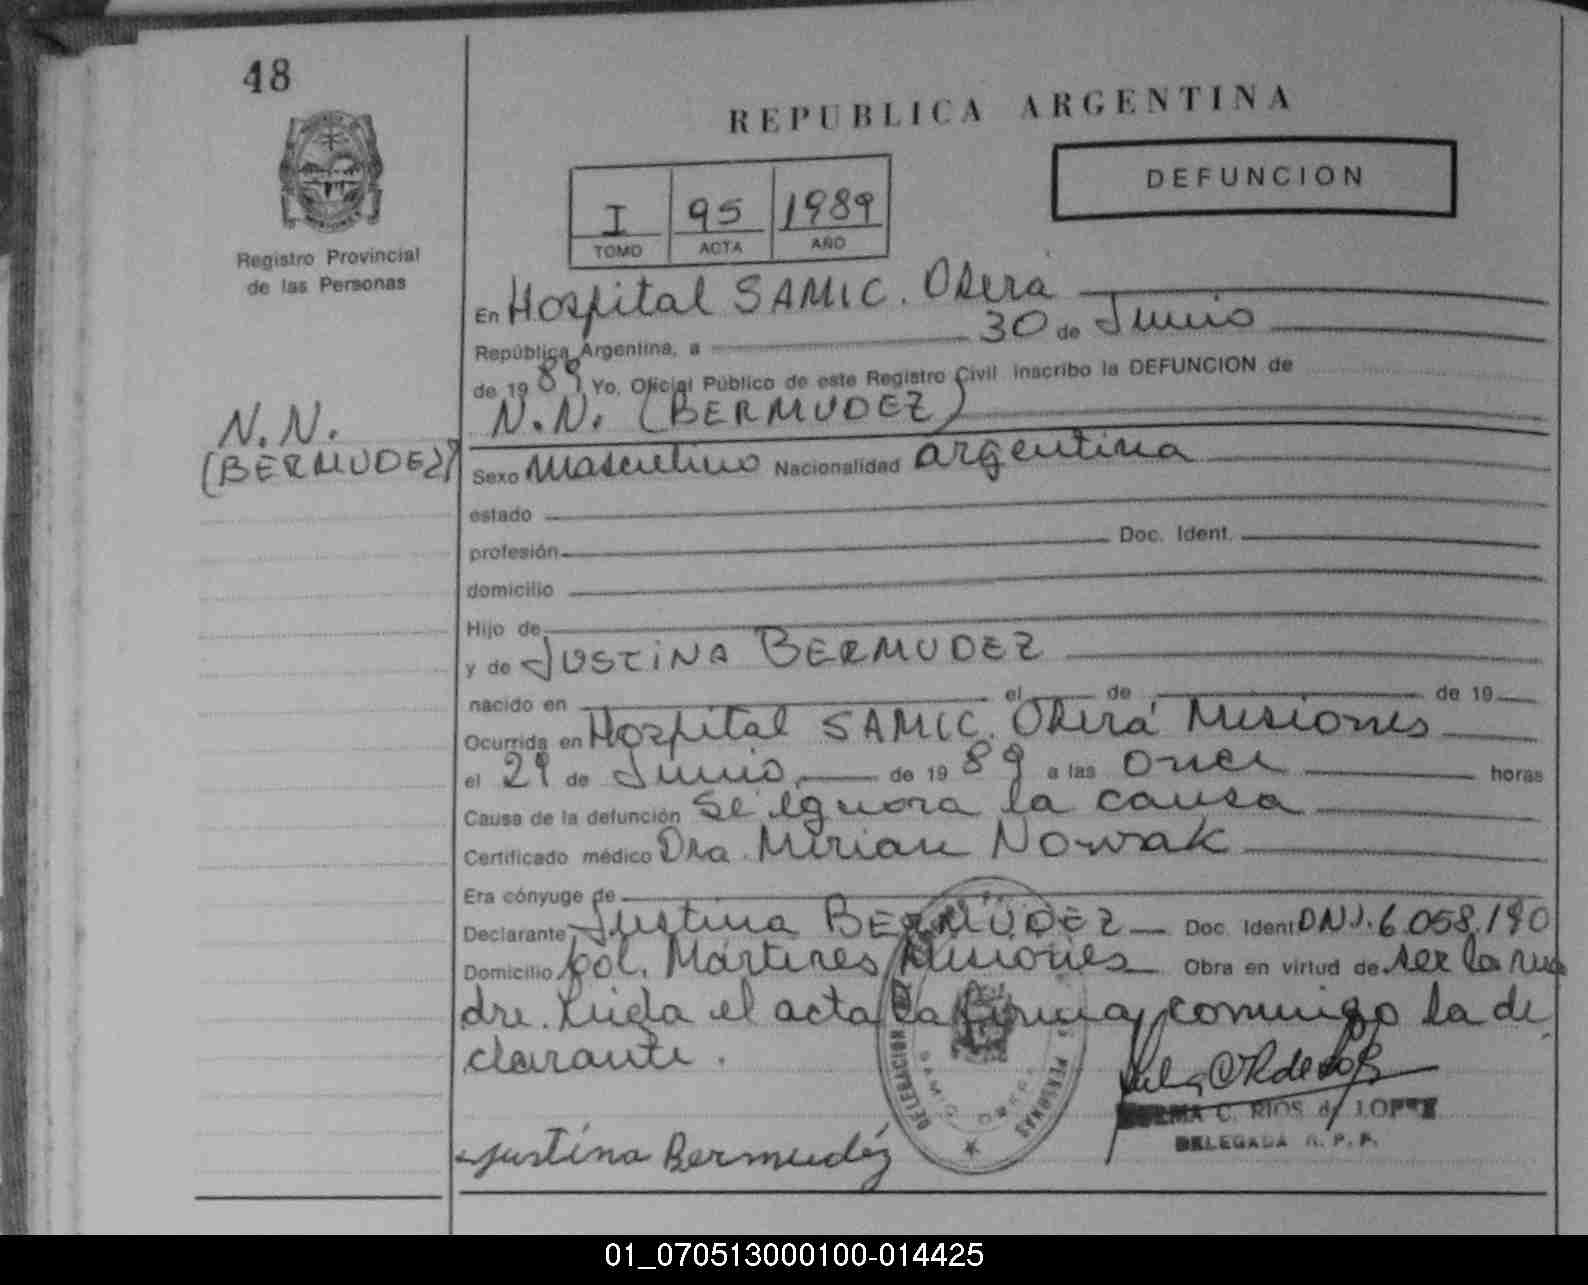 48
REPUBLICA ARGENTINA
DEFUNCION
I 95 1989
TOMO ACTA AÑO
Registro Provincial
de las Personas
En Hospital SAMIC. Oberá
República Argentina, a 30 de Junio
de 19 89, Yo, Oficial Público de este Registro Civil inscribo la DEFUNCION de
N.N. (BERMUDEZ)
N.N.
(BERMUDEZ)
Sexo masculino Nacionalidad argentina
estado
profesión Doc. Ident.
domicilio
Hijo de
y de JUSTINA BERMUDEZ
nacido en el de de 19
Ocurrida en Hospital SAMIC. Oberá Misiones
el 29 de Junio de 19 89 a las once horas
Causa de la defunción Se ignora la causa
Certificado médico Dra. Mirian Nowak
Era cónyuge de
Declarante Justina BERMUDEZ Doc. Ident DNI. 6.058.190
Domicilio Col. Mártires Misiones Obra en virtud de ser la ma
dre. Leída el acta la firma conmigo la de
clarante.
Justina Bermudéz
C. RIOS de LOPEZ
DELEGADA R. P. P.
DELEGACION PERSONAS
SAMIC OBERA
01_070513000100-014425